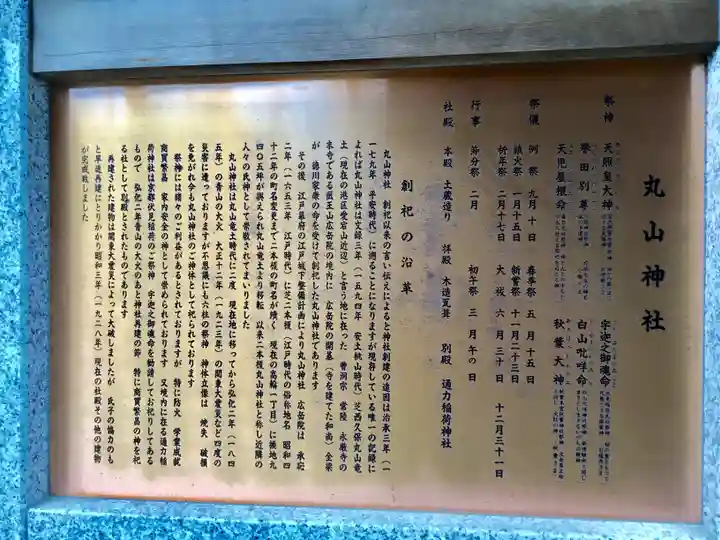 丸山神社
祭神 天照皇大神 宇迦之御魂命
誉田別尊 白山毗咩命
天児屋根命 秋葉大神
祭儀 例祭 九月十日 春季祭 五月十五日
鎮火祭 一月十五日 新嘗祭 十一月二十三日
祈年祭 二月十七日 大祓 六月三十日 十二月三十一日
行事 節分祭 二月 初午祭 三月午の日
社殿 本殿 土蔵造り 拝殿 木造瓦葺 別殿 通力稲荷神社
創祀の沿革
丸山神社 創祀以来の言い伝えによると神社創建の遠因は治承三年(一
一七九年 平安時代)に遡ることになりますが現存している唯一の記録に
よれば丸山神社は文録三年(一五九四年 安土桃山時代)芝西久保丸山竜
土(現在の港区愛宕山近辺)と言う地に在った 曹洞宗 常陸 永厳寺の
末寺である医王山広岳院の境内に 広岳院の開基(寺を建てた和尚)全梁
が 徳川家康の命を受けて創祀した丸山神社であります
その後 江戸幕府の江戸城下整備計画により丸山神社 広岳院は 承応
二年(一六五三年 江戸時代)に芝二本榎(江戸時代の俗称地名 昭和四
十二年の町名変更まで二本榎の町名が残く 現在の高輪一丁目)に換地九
四〇五坪が与えられ丸山竜土より移転 以来二本榎丸山神社と称し近隣の
人々の氏神として崇敬されてまいりました
丸山神社は丸山竜土時代に二度 現在地に移ってから弘化二年(一八四
五年)の青山の大火 大正十二年(一九二三年)の関東大震災など四度の
災害に遭っておりますが不思議にも六柱の祭神 神体立像は 焼失 破損
を免がれ今も丸山神社のご神体として祀られております
祭神には諸々のご利益があるとされておりますが 特に防火 学業成就
商買繁昌 家内安全の神として崇められております 又境内に在る通力稲
荷神社は京都伏見稲荷のご祭神 宇迦之御魂命を勧請してお祀りしてある
もので 弘化二年青山の大火のあと神社再建の節 特に商買繁昌の神を祀
る社として別殿とされたものであります
再建された建物は関東大震災によって大破しましたが 氏子の協力のも
と早速再建にとりかかり昭和三年(一九二八年)現在の社殿その他の建物
が完成致しました